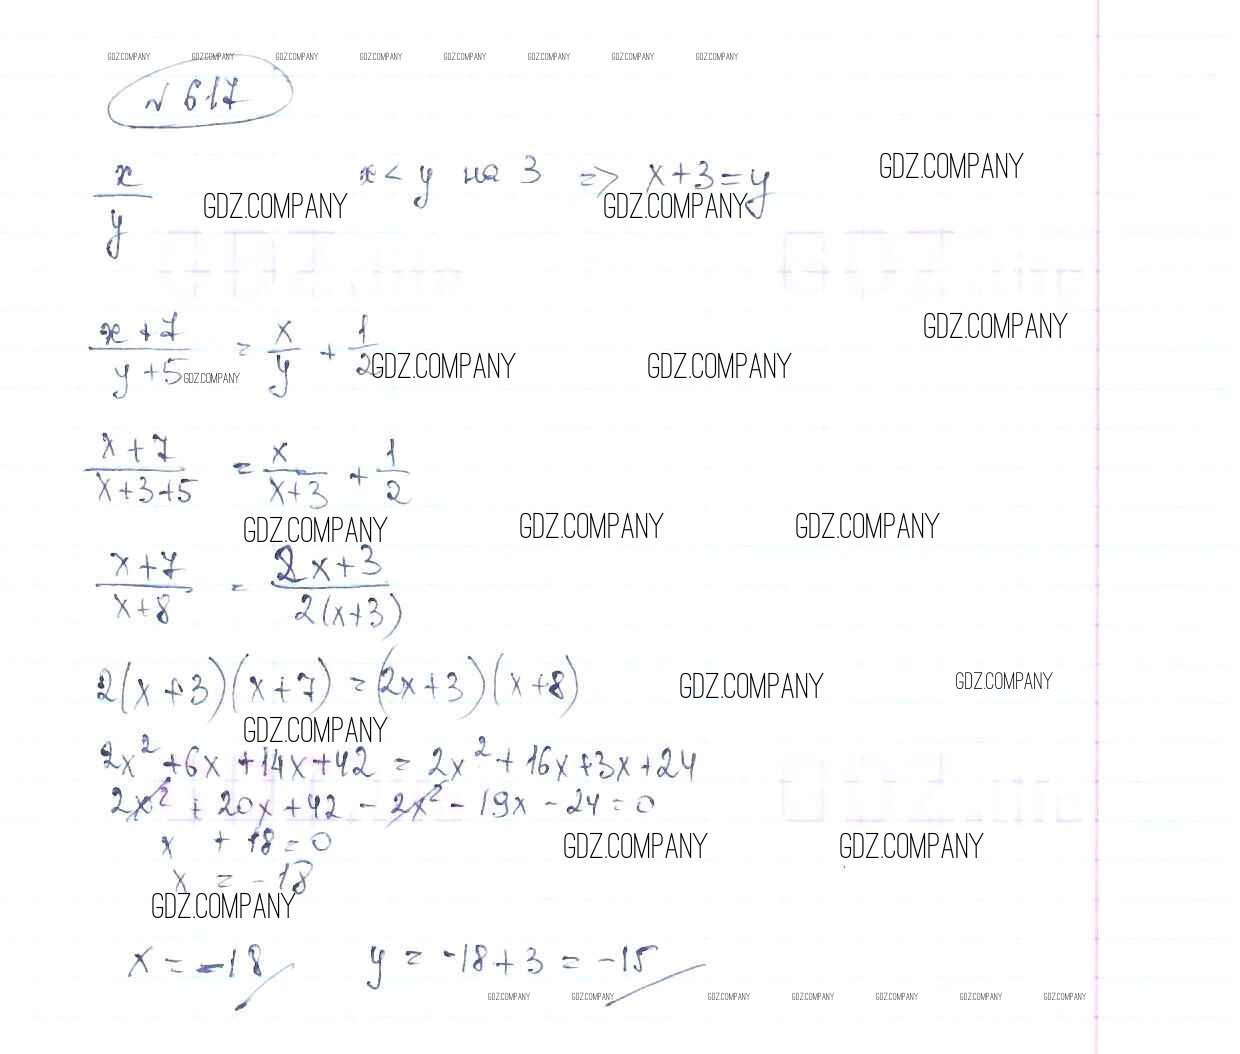 GDZ.COMPANY GDZ.COMPANY GDZ.COMPANY GDZ.COMPANY GDZ.COMPANY GDZ.COMPANY GDZ.COMPANY GDZ.COMPANY
№ 617
x/y x < y на 3 => x + 3 = y
GDZ.COMPANY
GDZ.COMPANY GDZ.COMPANY
GDZ.COMPANY
(x + 7)/(y + 5) = x/y + 1/2
GDZ.COMPANY GDZ.COMPANY GDZ.COMPANY
(x + 7)/(x + 3 + 5) = x/(x + 3) + 1/2
GDZ.COMPANY GDZ.COMPANY GDZ.COMPANY
(x + 7)/(x + 8) = (2x + 3)/(2(x + 3))
2(x + 3)(x + 7) = (2x + 3)(x + 8)
GDZ.COMPANY GDZ.COMPANY
GDZ.COMPANY
2x² + 6x + 14x + 42 = 2x² + 16x + 3x + 24
2x² + 20x + 42 - 2x² - 19x - 24 = 0
x + 18 = 0
GDZ.COMPANY GDZ.COMPANY
x = -18
GDZ.COMPANY
x = -18 y = -18 + 3 = -15
GDZ.COMPANY GDZ.COMPANY GDZ.COMPANY GDZ.COMPANY GDZ.COMPANY GDZ.COMPANY GDZ.COMPANY